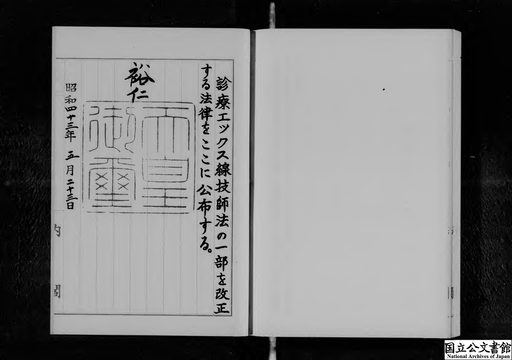 診療エックス線技師法の一部を改正
する法律をここに公布する。
裕仁
天皇
御璽
昭和四十三年五月二十三日
内閣
国立公文書館
National Archives of Japan